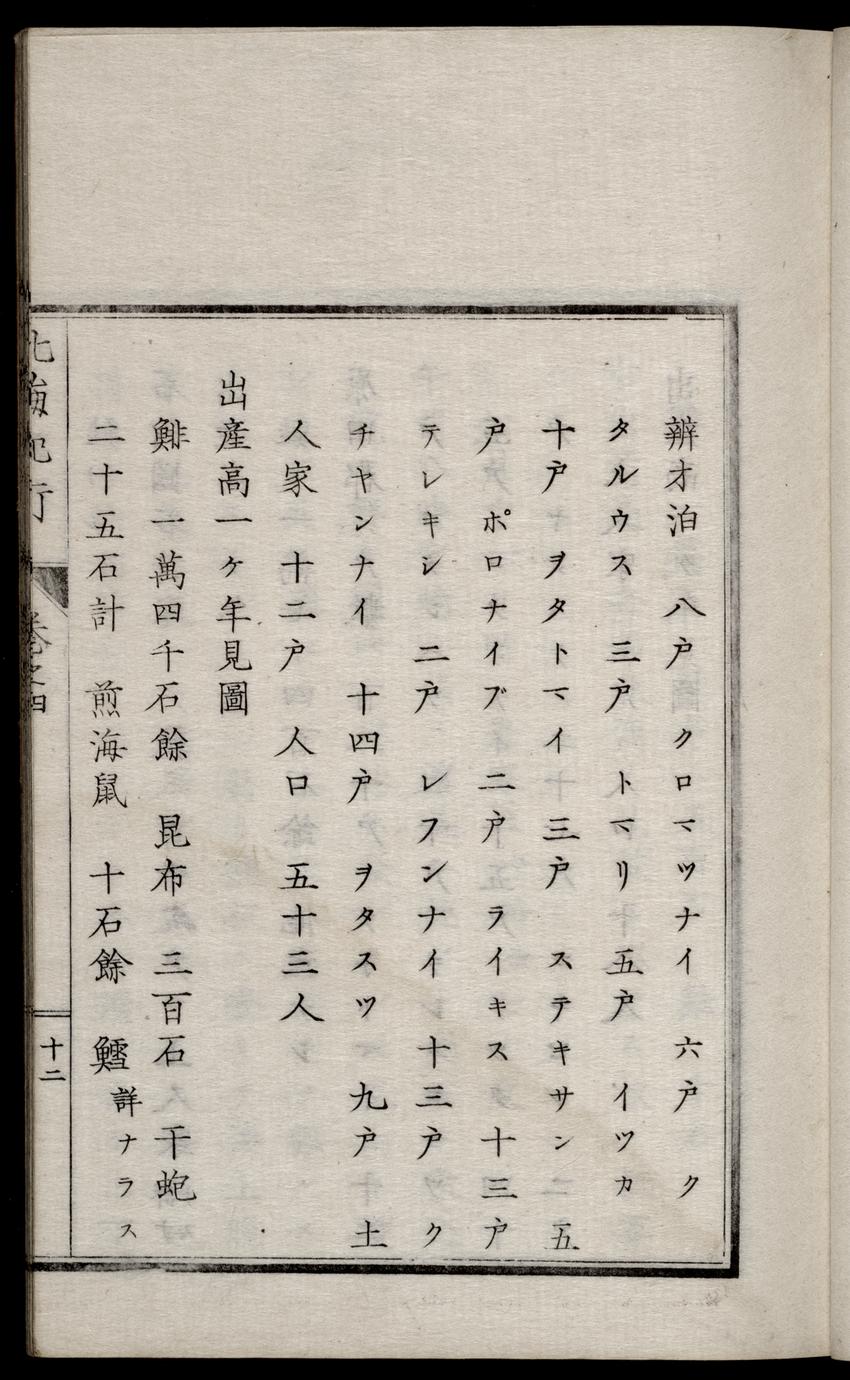 辨才泊 八戸 クロマツナイ 六戸 ク
タルウス 三戸 トマリ 十五戸 イツカ
十戸 ヲタトマイ 三戸 ステキサン 二五
戸 ポロナイブ 二戸 ライキス 十三戸
テレキシ 二戸 レフンナイ 十三戸 ク
チヤンナイ 十四戸 ヲタスツ 九戸 土
人家 十二戸 人口 五十三人
出産高一ケ年見圖
鯡 一萬四千石餘 昆布 三百石 干蚫
二十五石計 煎海鼠 十石餘 鱈 詳ナラス
北海紀行 卷之四 十二